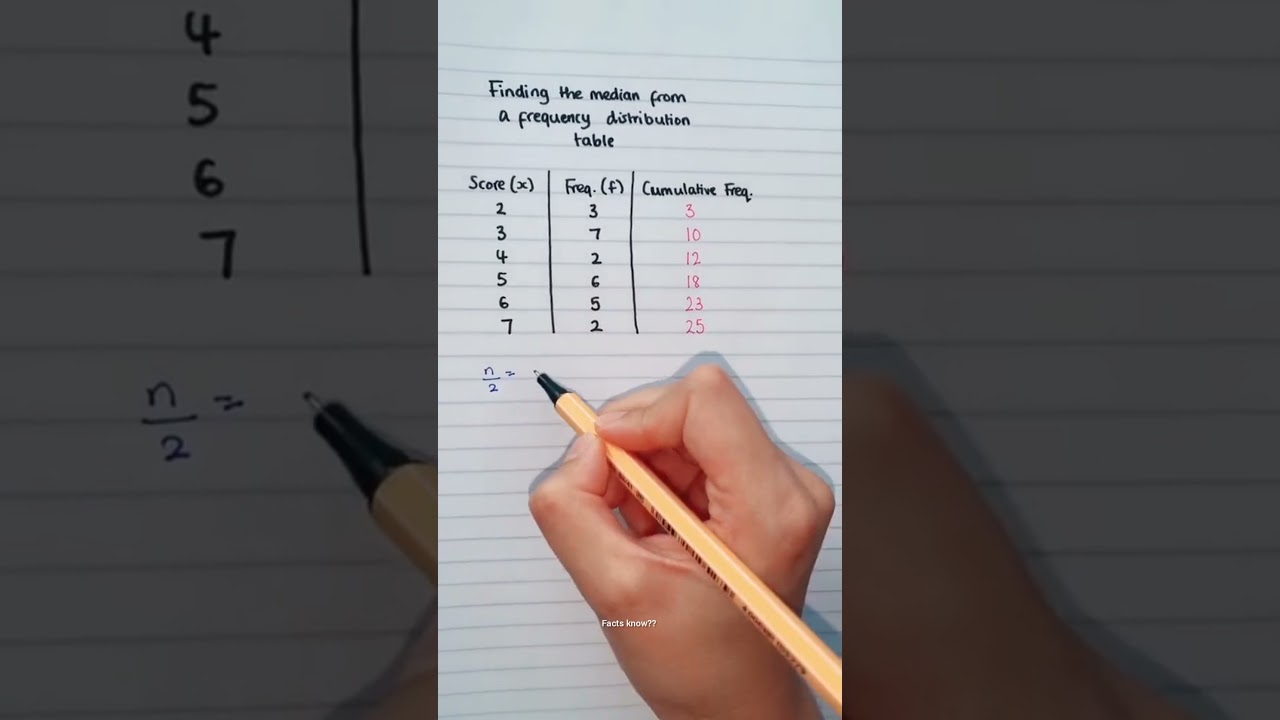 Finding the median from
a frequency distribution
table
Score (x) Freq. (f) Cumulative Freq.
2 3 3
3 7 10
4 2 12
5 6 18
6 5 23
7 2 25
n/2 =
Facts know??
4
5
6
7
n/2 =